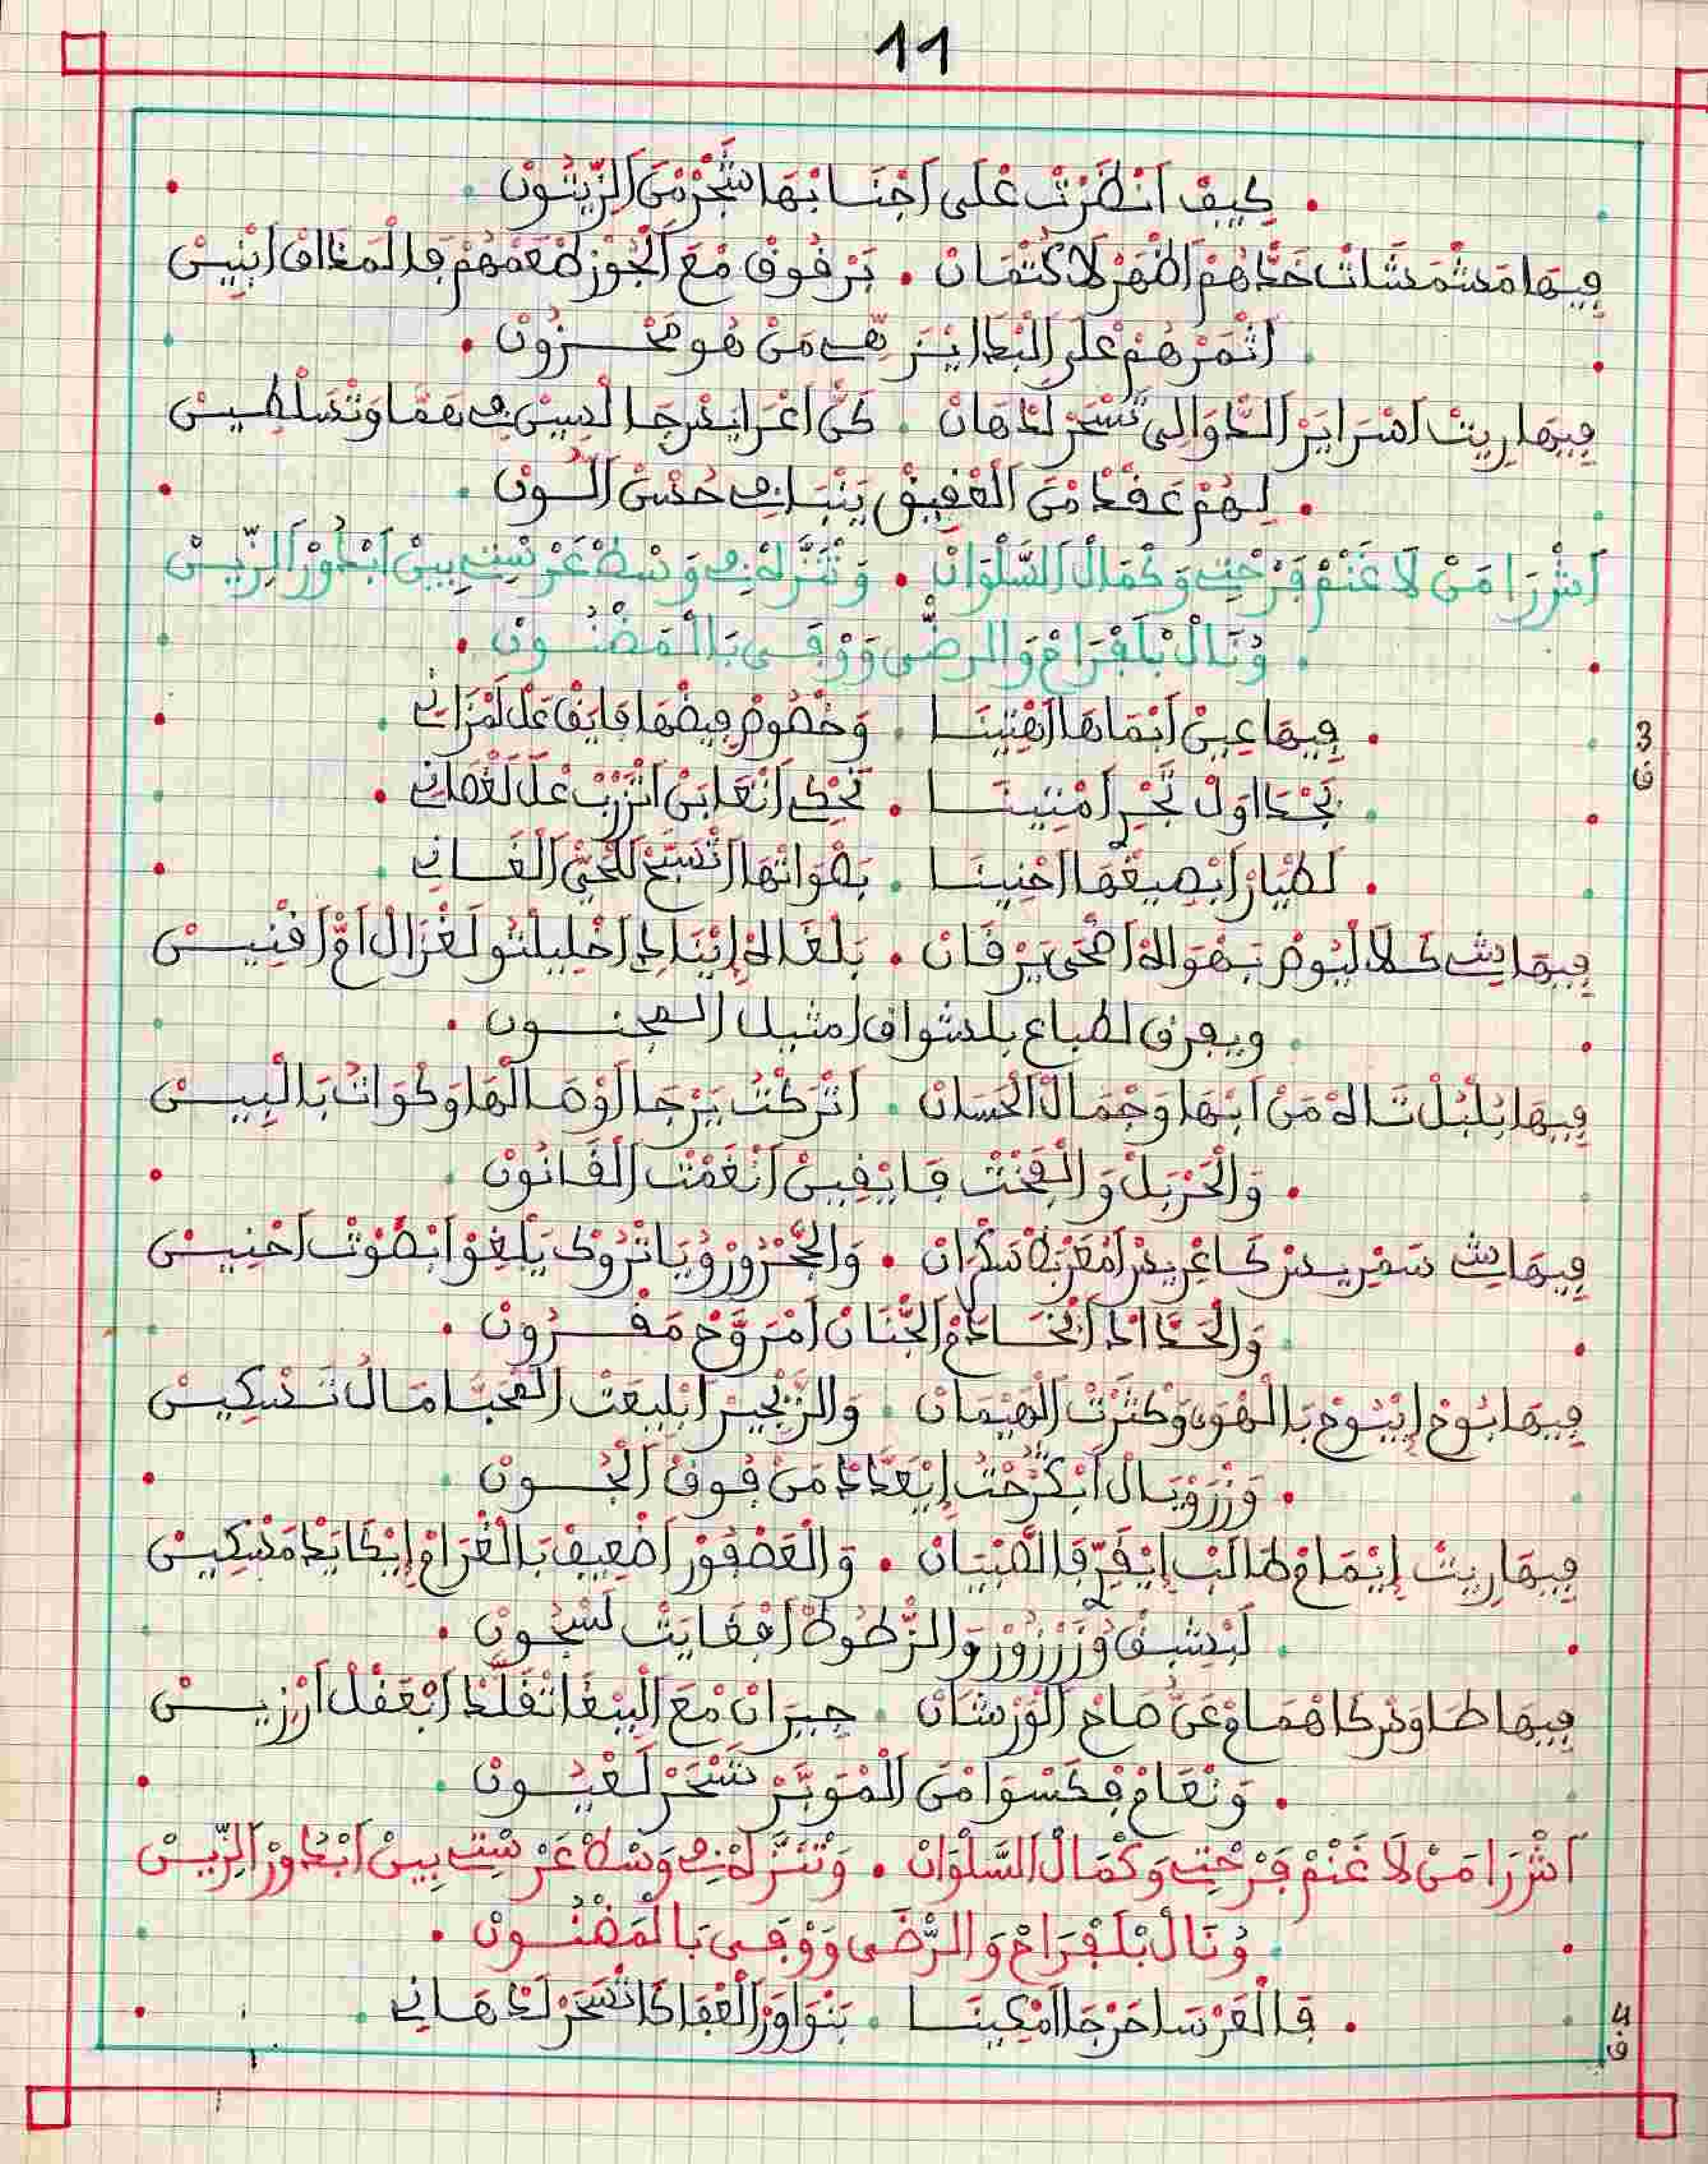 11
كيف انظرت على اجنابها شجر من الزيتون
فيها مشمشات خدهم اظهر لا كتمان . برقوق مع الجوز طعمهم فالمذاق ابنيس
اثمرهم على البطا ينزه من هو محزون
فيها ريت اسراير الدوالي تسحر لذهان . كن اعرايس رجالسين في بهما وتسلطيس
لهم عقد من العقيق ينبا في حسن اللون
اشرا من لا غنم فرحتي وكمال السلوان . وتنزه في وسط غرستي بين ابدور الزيس
ونال بلفراح والرضى ووفى بالمضنون
فيها عين ابماها اهتينا . وخصوص فيضها فايق على لمزاني
بجداول تجر امتينا . تحكي انعابن اتزرب على لغصاني
لطيار ابصيغها احنينا . بصواتها تسبح للحي الغاني
فيها يش كلا ليوم بهواه اضحى يرقان . بلغاه إيناد اخليلتو لغزال ام افنيس
ويعرف لطباع بلشواق امثيل المجنون
فيها بلبل تاه من ابها وجمال الحسان . اتركت يرجا لوصالها وكوات بالبيس
والحربل والفخت فايقين انغمت القانون
فيها يش سمريس كاغريس امعربط سكران . والجرور ويا تروك يلغو ابصوت احنيس
والحداد انحاط والجنان امروح مقرون
فيها بوح ايبوح بالهوى وكثرت الهيمان . والزنجير ابليعت المحبا مال تسكيس
وزرويال ابكرحت إيعدد من فوق الجون
فيها ريت إيمام طالب إيقر فالصبيان . والعصفور اضعيف بالغرام إيكايد مسكيس
لبشيف وزرزور والزطوط ارفقايت لشجون
فيها طاوس كاهمام عن صاح الورشان . جيران مع البيغا تقلد ابعقل ارزيس
ونعام فكسوا من الموبر تسحر لعيون
اشرا من لا غنم فرحتي وكمال السلوان . وتنزه في وسط غرستي بين ابدور الزيس
ونال بلفراح والرضى ووفى بالمضنون
فالغرسا حرجا امكينا . بنواور العفا كاتسحر لذهاني
3
ق
4
ق